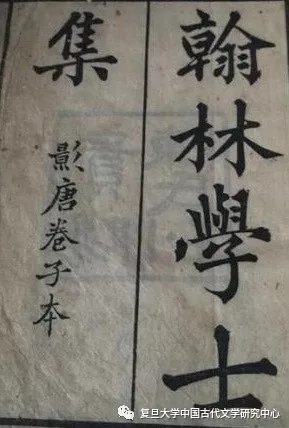 翰林學士
集
影唐卷子本
复旦大学中国古代文学研究中心